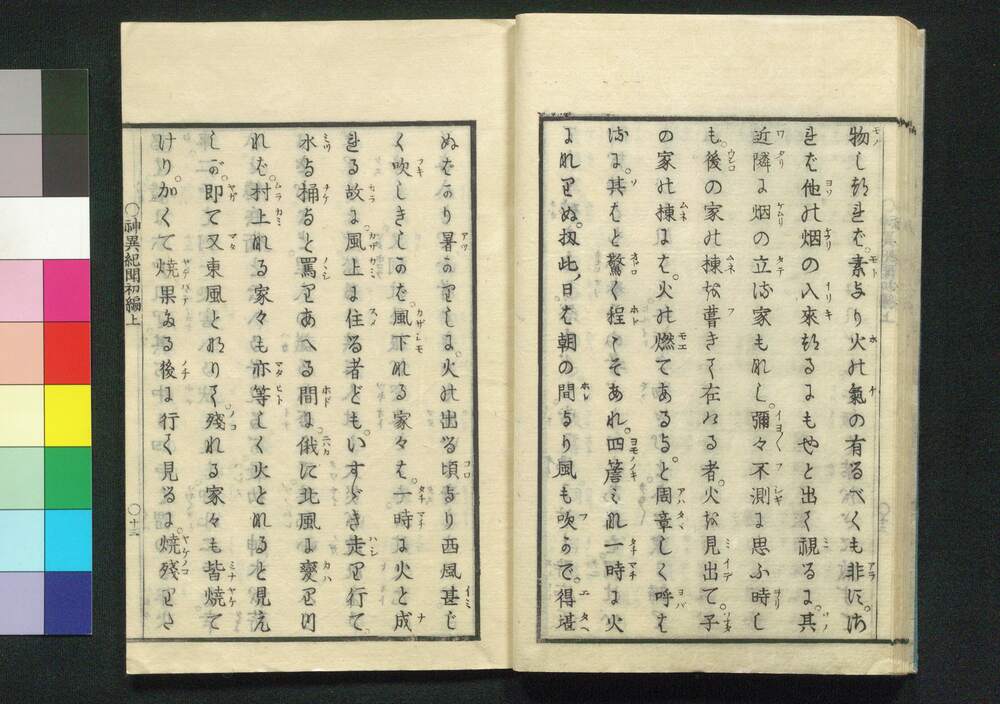 物しつれば。素より火の氣の有るべくも非ず。さ
れば他の烟の入來つるにもやと出て視るに。其
近隣に烟の立る家もなし。彌々不測に思ふ時し
も。後の家の棟を葺きて在ける者。火を見出て。子
の家の棟には。火の燃てあるよ。と周章しく呼は
るに。其はと驚く程こそあれ。四簷みな一時に火
になりぬ。扨此日は朝の間より風も吹かで。得堪
ぬばかり暑かりしに。火の出る頃より西風甚じ
く吹しきしかば。風下なる家々は。一時に火と成
ける故に。風上に住る者ども。いすゞき走り行て。
水よ桶よと罵りあへる間に。俄に北風に變りけ
れば。村上なる家々も亦等しく火となると見え
しが。即て又東風となりて。殘れる家々も皆焼て
けり。かくて焼果たる後に行て見るに。焼殘りさ
〇神異紀聞初編上 〇十三